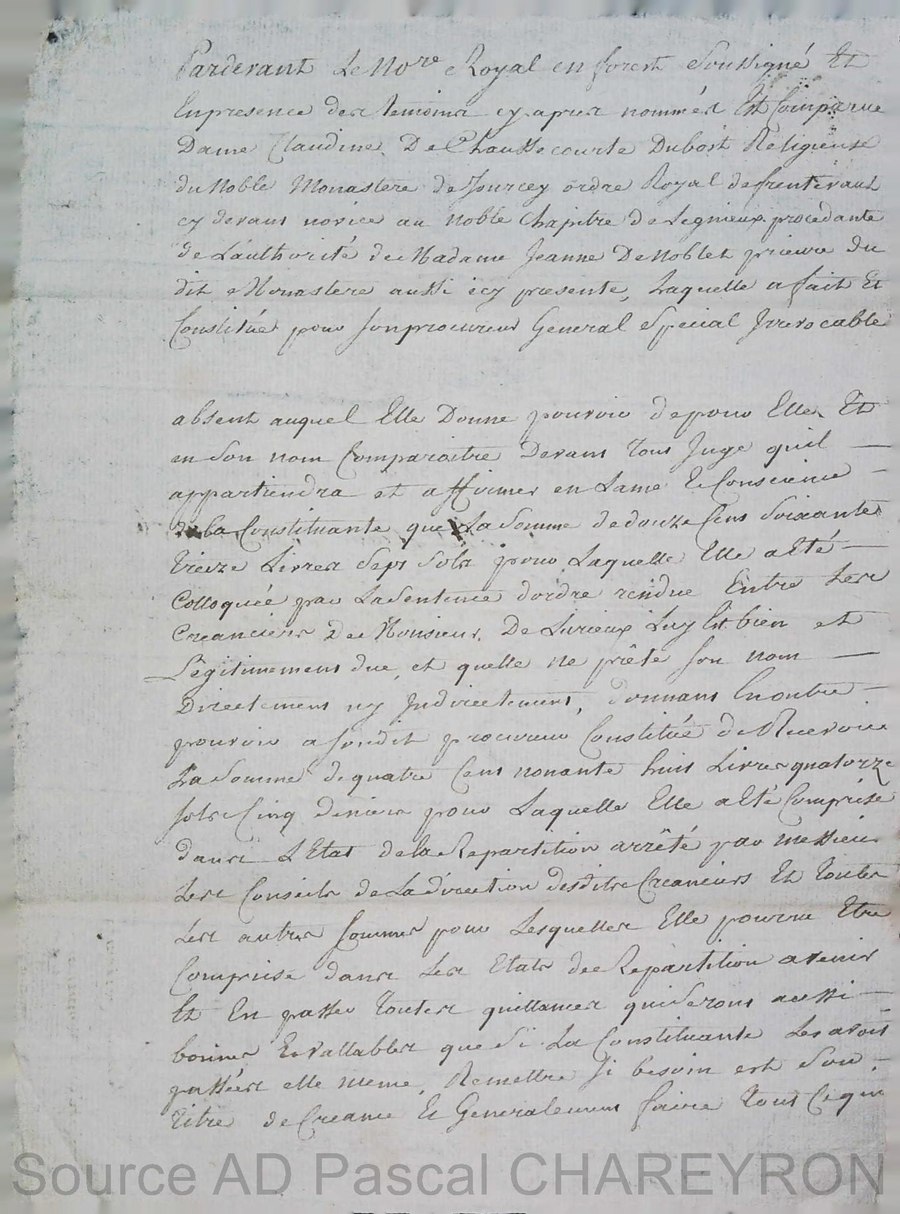 Pardevant Le No.re Royal en forest Soussigné Et
En presence des temoins cy apres nommés Est Comparue
Dame Claudine De Chaussecourte Dubost Religieuse
du Noble Monastere de Jourcey ordre Royal de frontevaux
cy devant novice au noble Chapitre de Legnieux procedante
de L'authorité de Madame Jeanne De Noblet prieure du
dit Monastere aussi icy presente, Laquelle a fait Et
Constitué pour son procureur General Special Irrevocable
absent auquel Elle Donne pouvoir de pour Elle Et
en Son nom Comparaitre Devant tous Juge quil
appartiendra et affirmer en Lame Et Conscience
de la Constituante que La Somme de douze Cens Soixante
treize Livres Sept Sols pour Laquelle Elle a Eté
Colloquée par La Sentence dordre rendue Entre Les
Creanciers de Monsieur De Lirieux Luy Est bien et
Légitimement due, et quelle ne prête son nom
Directement ny Indirectement, donnant En outre
pouvoir a sondit procureur Constitué de Recevoir
La Somme de quatre Cens nonante huit Livres quatorze
sols Cinq deniers pour Laquelle Elle a Eté Comprise
dans L'Etat de la Repartition arrêté par Messieurs
Les Conseils de La direction desdits Creanciers Et toutes
Les autres sommes pour Lesquelles Elle pourra Etre
Comprise dans Les Etats de Repartition avenir
Et En passer toutes quittances qui Seront aussi
bonnes Et vallables que Si La Constituante Les avoit
passées elle meme, Remettre Si besoin est Son
titre de Creance Et Generalement faire tout Ce qui
Source AD Pascal CHAREYRON